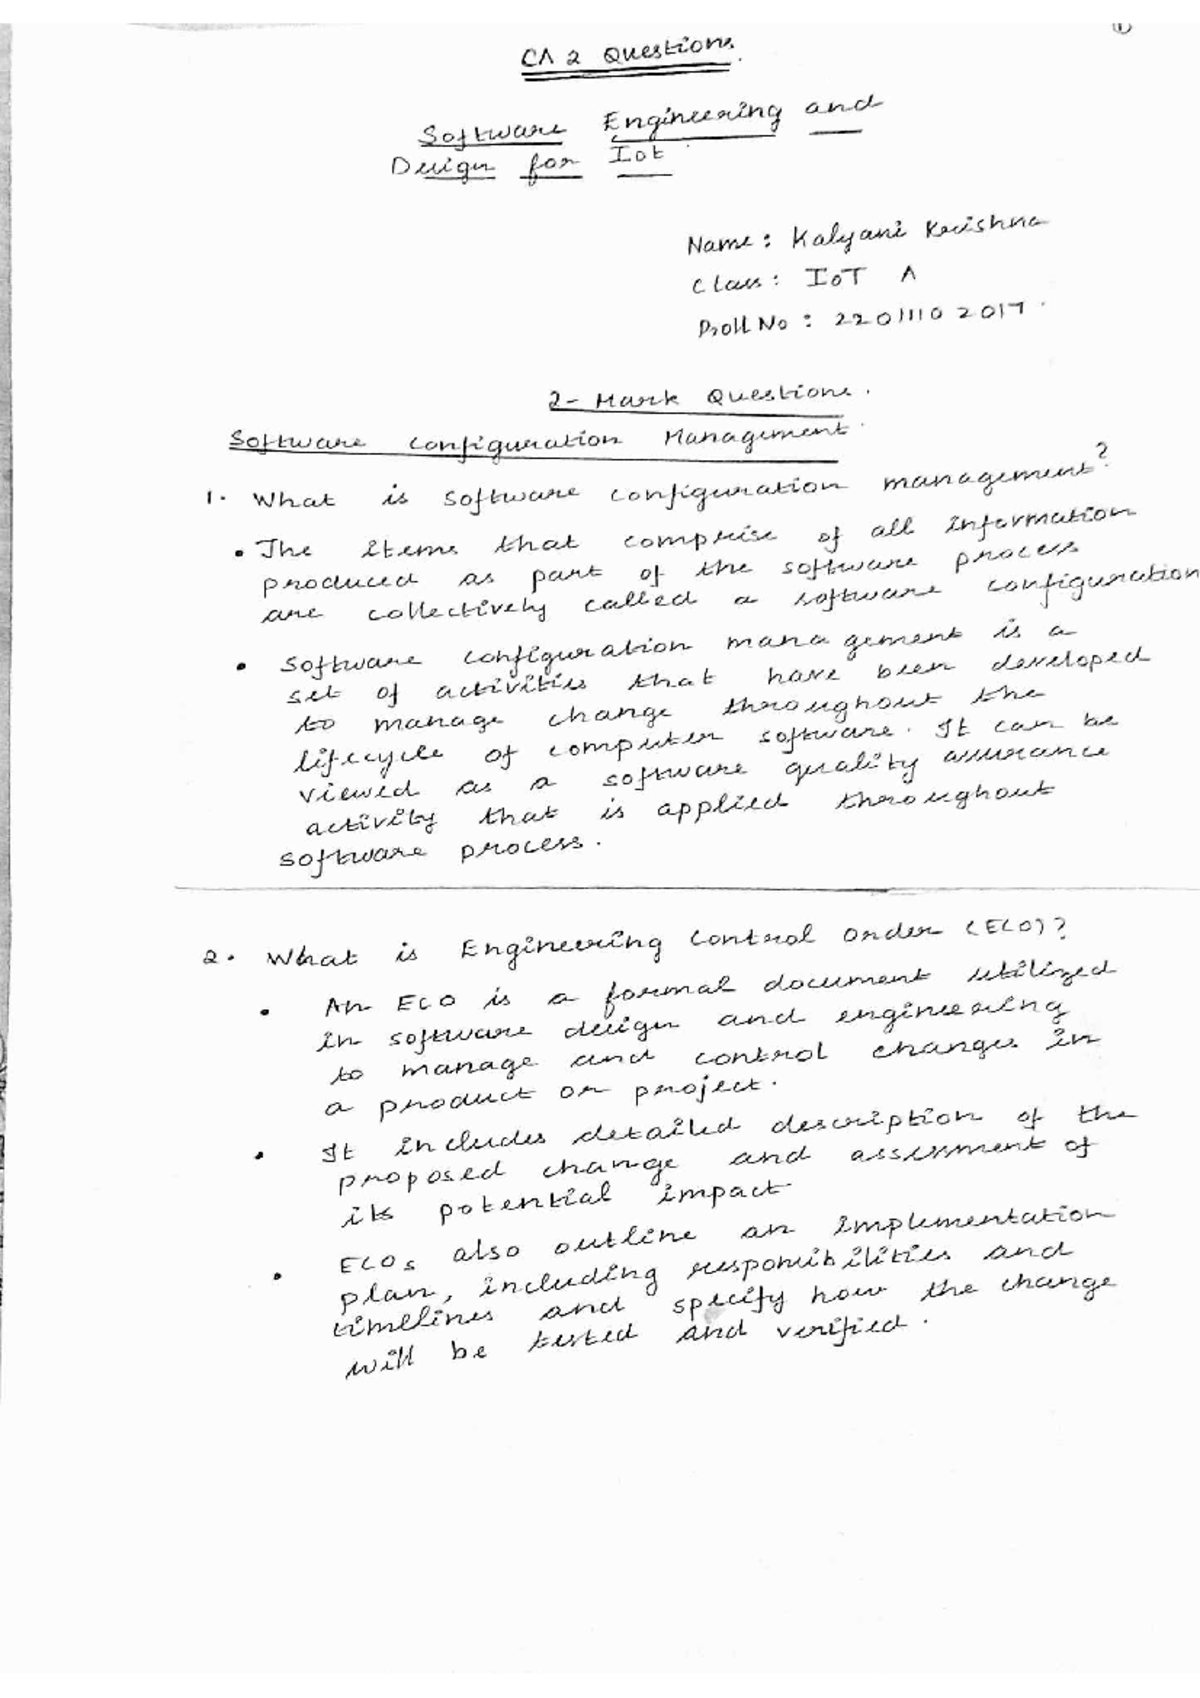 ①
CA 2 Questions.
Software Engineering and
Design for Iot.
Name: Kalyani Krishna
Class: IoT A
Roll No: 2201110 2017.
2-Mark Questions.
Software Configuration Management.
1. What is software configuration management?
• The items that comprise of all information
produced as part of the software process
are collectively called a software configuration
• Software configuration management is a
set of activities that have been developed
to manage change throughout the
lifecycle of computer software. It can be
viewed as a software quality assurance
activity that is applied throughout
software process.
2. What is Engineering Control Order (ECO)?
• An ECO is a formal document utilized
in software design and engineering
to manage and control changes in
a product or project.
• It includes detailed description of the
proposed change and assessment of
its potential impact
• ECOs also outline an implementation
plan, including responsibilities and
timelines and specify how the change
will be tested and verified.